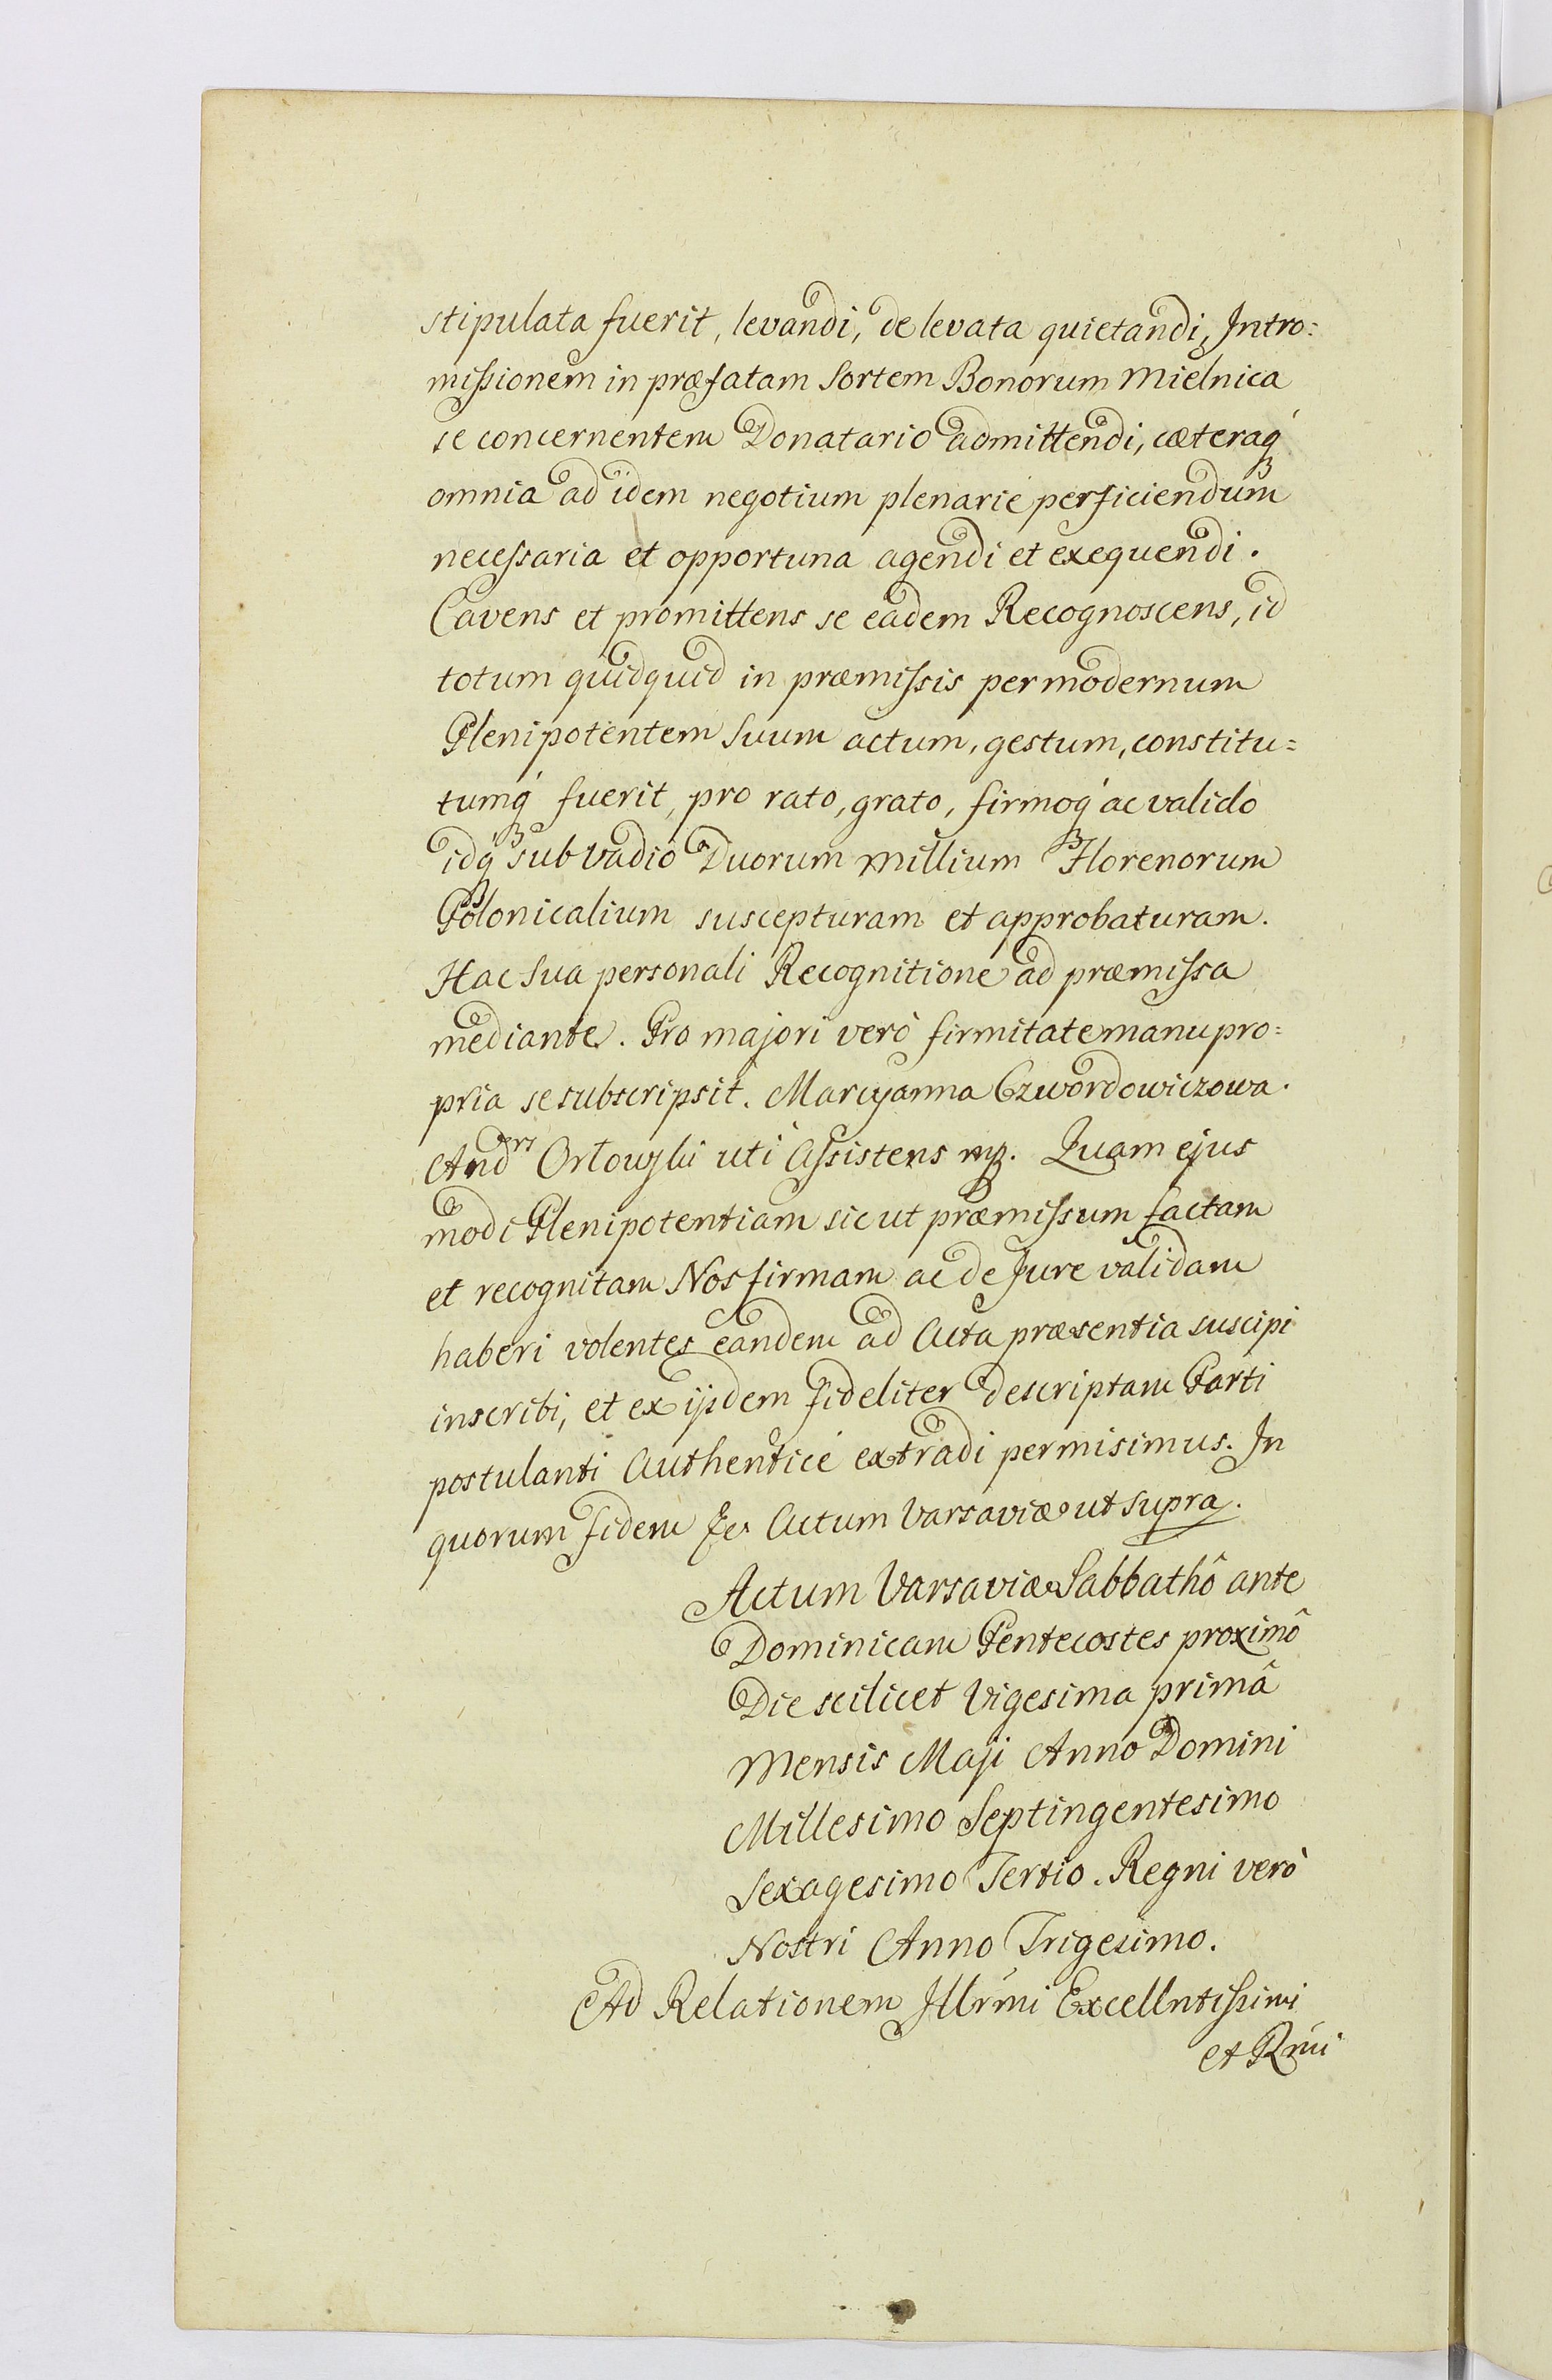 stipulata fuerit, levandi, de levata quietandi, Intro:
missionem in præfatam Sortem Bonorum Mielnica
se concernentem Donatario admittendi, cæteraq́
omnia ad idem negotium plenarie perficiendum
necessaria et opportuna agendi et exequendi.
Cavens et promittens se eadem Recognoscens, id
totum quidquid in præmissis per modernum
Plenipotentem Suum actum, gestum, constitu=
tumq́ fuerit, pro rato, grato, firmoq́ ac valido
idq́ sub vadio Duorum Millium Florenorum
Polonicalium suscepturam et approbaturam.
Hac Sua personali Recognitione ad præmissa
mediante. Pro majori verò firmitate manu pro=
pria se subscripsit. Maryanna Czwordowiczowa.
Orłowski uti Assistens mp. Quam ejus
modi Plenipotentiam sic ut præmissum factam
et recognitam Nos firmam ac de Jure validam
haberi volentes eandem ad Acta præsentia suscipi
inscribi, et ex ijsdem fideliter descriptam Parti
postulanti Authentice extradi permisimus. In
quorum fidem &c. Actum Varsaviæ ut supra.
Actum Varsaviæ Sabbathô ante
Dominicam Pentecostes proximô
Die scilicet Vigesima primâ
Mensis Maji Anno Domini
Millesimo Septingentesimo
Sexagesimo Tertio. Regni verò
Nostri Anno Trigesimo.
Ad Relationem Illrmi Excellntissimi
et Rmi